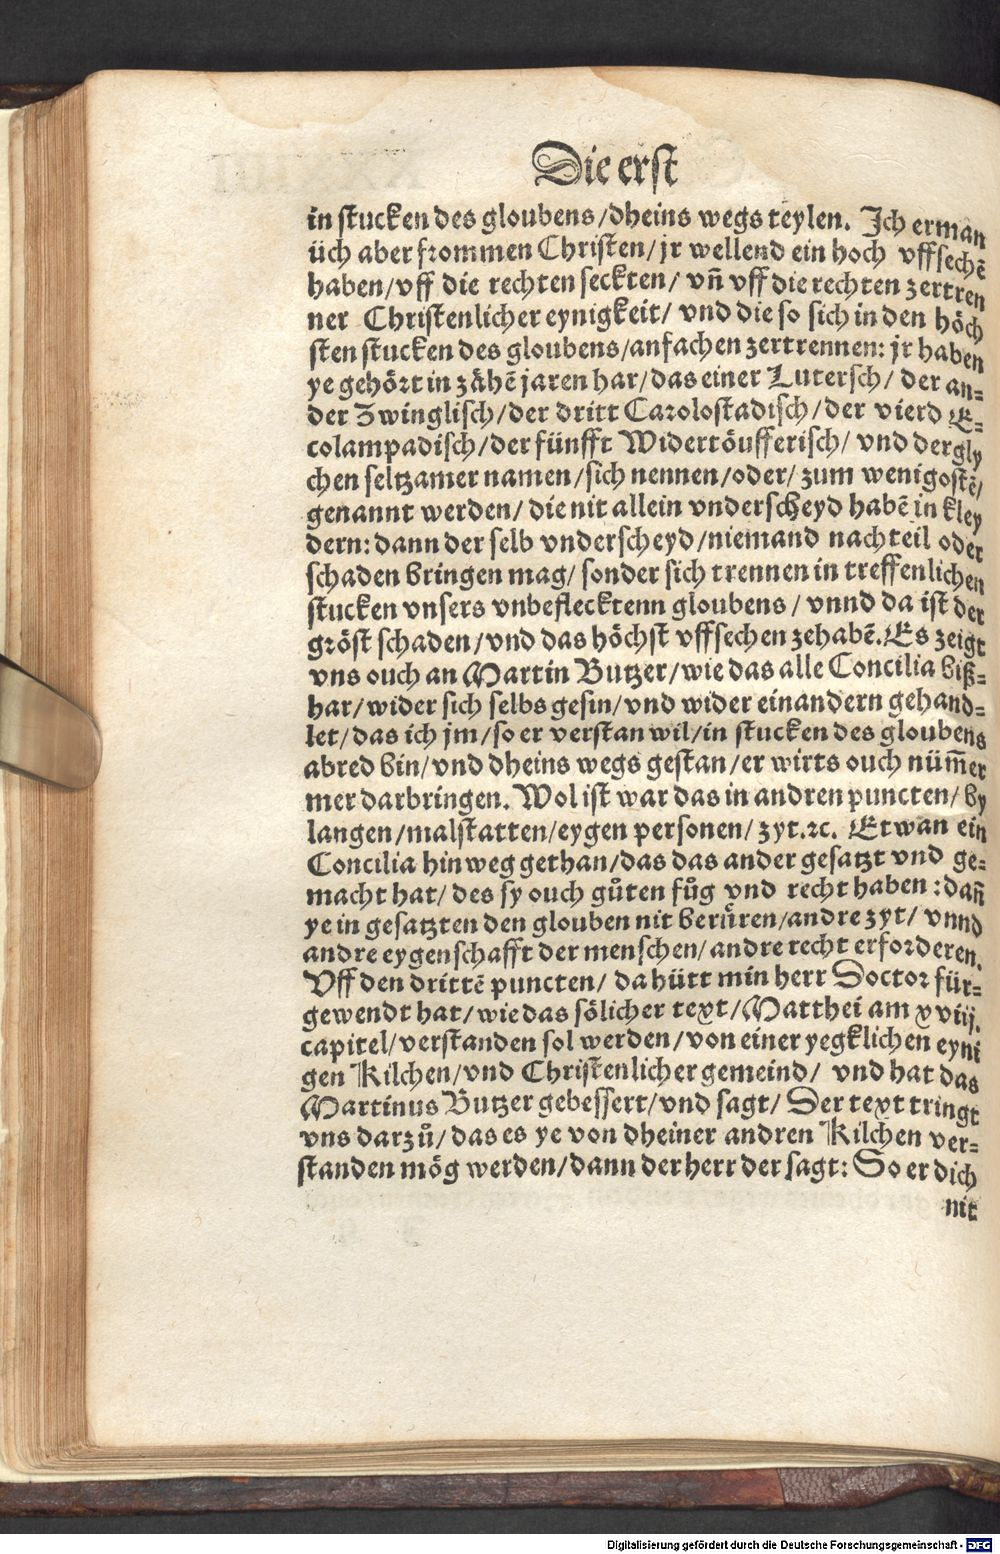 Die erst
in stucken des gloubens/dheins wegs teylen. Ich erman
üch aber frommen Christen/jr wellend ein hoch vffsechē
haben/vff die rechten seckten/ vñ vff die rechten zertren
ner Christenlicher eynigkeit/ vnd die so sich in den höch
sten stucken des gloubens/anfachen zertrennen: jr haben
ye gehört in zähē jaren har/das einer Lutersch/ der an-
der Zwinglisch/der dritt Carolostadisch/der vierd E-
colampadisch/der fünfft Widertöufferisch/ vnd dergly
chen seltzamer namen/sich nennen/oder/ zum wenigostē/
genannt werden/ die nit allein vnderscheyd habē in kley
dern: dann der selb vnderscheyd/niemand nachteil oder
schaden bringen mag/ sonder sich trennen in treffenlichen
stucken vnsers vnbeflecktenn gloubens/ vnnd da ist der
gröst schaden/vnd das höchst vffsechen zehabē. Es zeigt
vns ouch an Martin Butzer/wie das alle Concilia biß-
har/wider sich selbs gesin/vnd wider einandern gehand-
let/das ich jm/so er verstan wil/in stucken des gloubens
abred bin/vnd dheins wegs gestan/er wirts ouch nüm̄er
mer darbringen. Wol ist war das in andren puncten/ by
langen/malstatten/eygen personen/ zyt.ꝛc. Etwan ein
Concilia hinweg gethan/das das ander gesatzt vnd ge-
macht hat/ des sy ouch gůten fůg vnd recht haben: dañ
ye in gesatzten den glouben nit berüren/andre zyt/ vnnd
andre eygenschafft der menschen/andre recht erforderen.
Vff den drittē puncten/ da hütt min herr Doctor für-
gewendt hat/wie das sölicher text/Matthei am xviij.
capitel/verstanden sol werden/von einer yegklichen eyni
gen Kilchen/vnd Christenlicher gemeind/ vnd hat das
Martinus Butzer gebessert/vnd sagt/ Der text tringt
vns darzů/das es ye von dheiner andren Kilchen ver-
standen mög werden/dann der herr der sagt: So er dich
nit
Digitalisierung gefördert durch die Deutsche Forschungsgemeinschaft - DFG